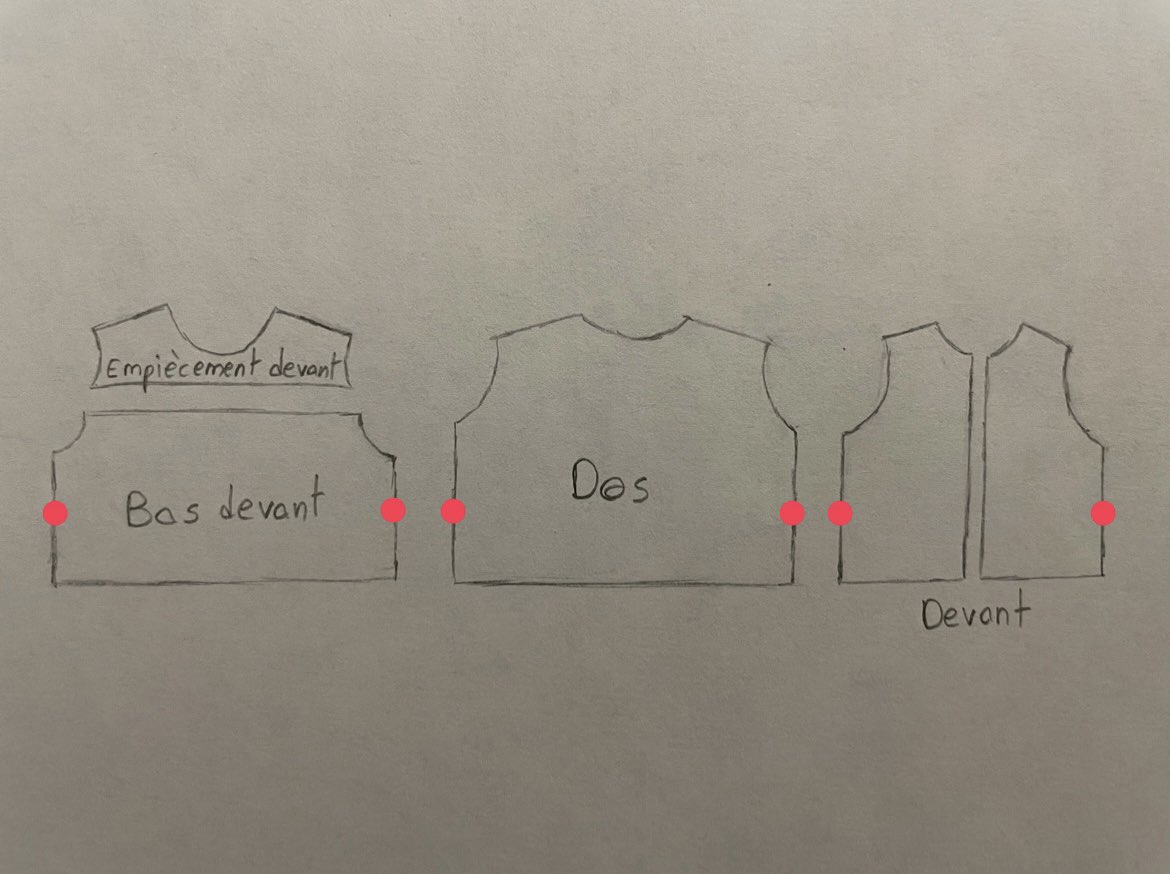 Empiècement devant
Bas devant
Dos
Devant